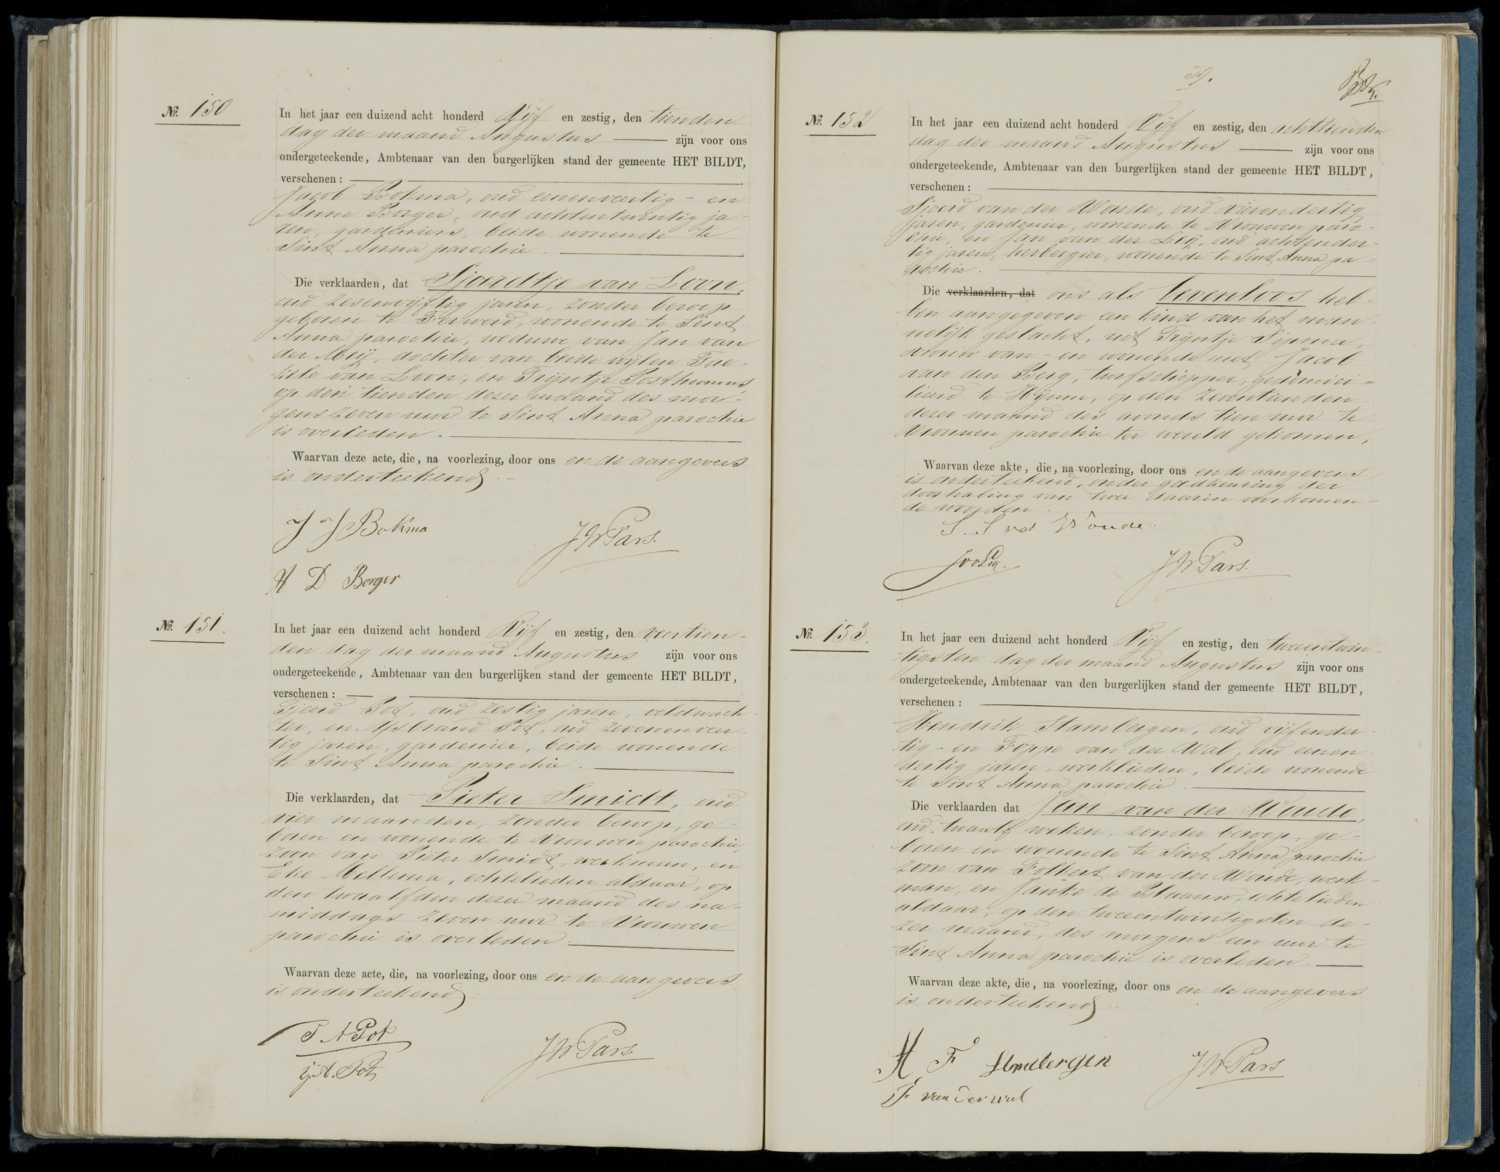 №. 150
In het jaar een duizend acht honderd Vijf en zestig, den tienden
dag der maand Augustus zijn voor ons
ondergeteekende, Ambtenaar van den burgerlijken stand der gemeente HET BILDT,
verschenen:
Jacob Bokma, oud eenenveertig - en
Anne Berger, oud achtentwintig ja-
ren, gardeniers, beide wonende te
Sint Anna parochie.
Die verklaarden, dat Sjoerdtje van Loon,
oud zesenvijftig jaren, zonder beroep
geboren te Ferwerd, wonende te Sint
Anna parochie, weduwe van Jan van
der Meij, dochter van beide wijlen
van Loon, en Trijntje Posthumus
op den tienden dezer maand des mor-
gens zeven uur te Sint Anna parochie
is overleden.
Waarvan deze acte, die, na voorlezing, door ons en de aangevers
is onderteekend
J J Bokma
JW Pars.
A D Berger
№. 151.
In het jaar een duizend acht honderd Vijf en zestig, den veertien-
den dag der maand Augustus zijn voor ons
ondergeteekende, Ambtenaar van den burgerlijken stand der gemeente HET BILDT,
verschenen:
Tjeerd Pot, oud zestig jaren, veldwach-
ter, en IJsbrand Pot, oud zevenenveer-
tig jaren, gardenier, beide wonende
te Sint Anna parochie.
Die verklaarden, dat Pieter Smidt, oud
vier maanden, zonder beroep, ge-
boren en wonende te Vrouwen parochie,
zoon van Pieter Smidt, werkman, en
Mellema, echtelieden aldaar, op
den twaalfden dezer maand des na-
middags zeven uur te Vrouwen
parochie is overleden
Waarvan deze acte, die, na voorlezing, door ons en de aangevers
is onderteekend
T A Pot
JW Pars.
IJ.A. Pot
59.
№. 152
In het jaar een duizend acht honderd Vijf en zestig, den achttienden
dag der maand Augustus zijn voor ons
ondergeteekende, Ambtenaar van den burgerlijken stand der gemeente HET BILDT,
verschenen:
Sjoerd van der Woude, oud vierendertig
jaren, gardenier, wonende te Vrouwen paro-
chie, en Jan van der Leij, oud achtender-
tig jaren, herbergier, wonende te Sint Anna pa-
rochie.
Die verklaarden, dat ons als levenloos heb-
ben aangegeven een kind van het man-
nelijk geslacht, uit Trijntje Sipma,
vrouw van- en wonende met Jacob
van den Berg, turfschipper, gedomici-
lieerd te op den zeventienden
dezer maand des avonds tien uur te
Vrouwen parochie ter wereld gekomen,
Waarvan deze akte, die, na voorlezing, door ons en de aangevers
is onderteekend, onder goedkeuring der
doorhaling van twee daarin voorkomen-
de woorden.
S. S vd Woude.
JvdLeij.
JW Pars.
№. 153.
In het jaar een duizend acht honderd Vijf en zestig, den tweeentwin-
tigsten dag der maand Augustus zijn voor ons
ondergeteekende, Ambtenaar van den burgerlijken stand der gemeente HET BILDT,
verschenen:
Hendrik Stambergen, oud vijfender-
tig- en Foppe van der Wal, oud eenen-
dertig jaren, werklieden, beide wonende
te Sint Anna parochie.
Die verklaarden dat Jan van der Woude,
oud twaalf weken, zonder beroep, ge-
boren en wonende te Sint Anna parochie
zoon van Folkert van der Woude, werk-
man, en Janke de echtelieden
aldaar, op den tweeentwintigsten de-
zer maand, des morgens een uur te
Sint Anna parochie is overleden.
Waarvan deze akte, die, na voorlezing, door ons en de aangevers
is onderteekend
H F Stambergen
JW Pars
F van der wal